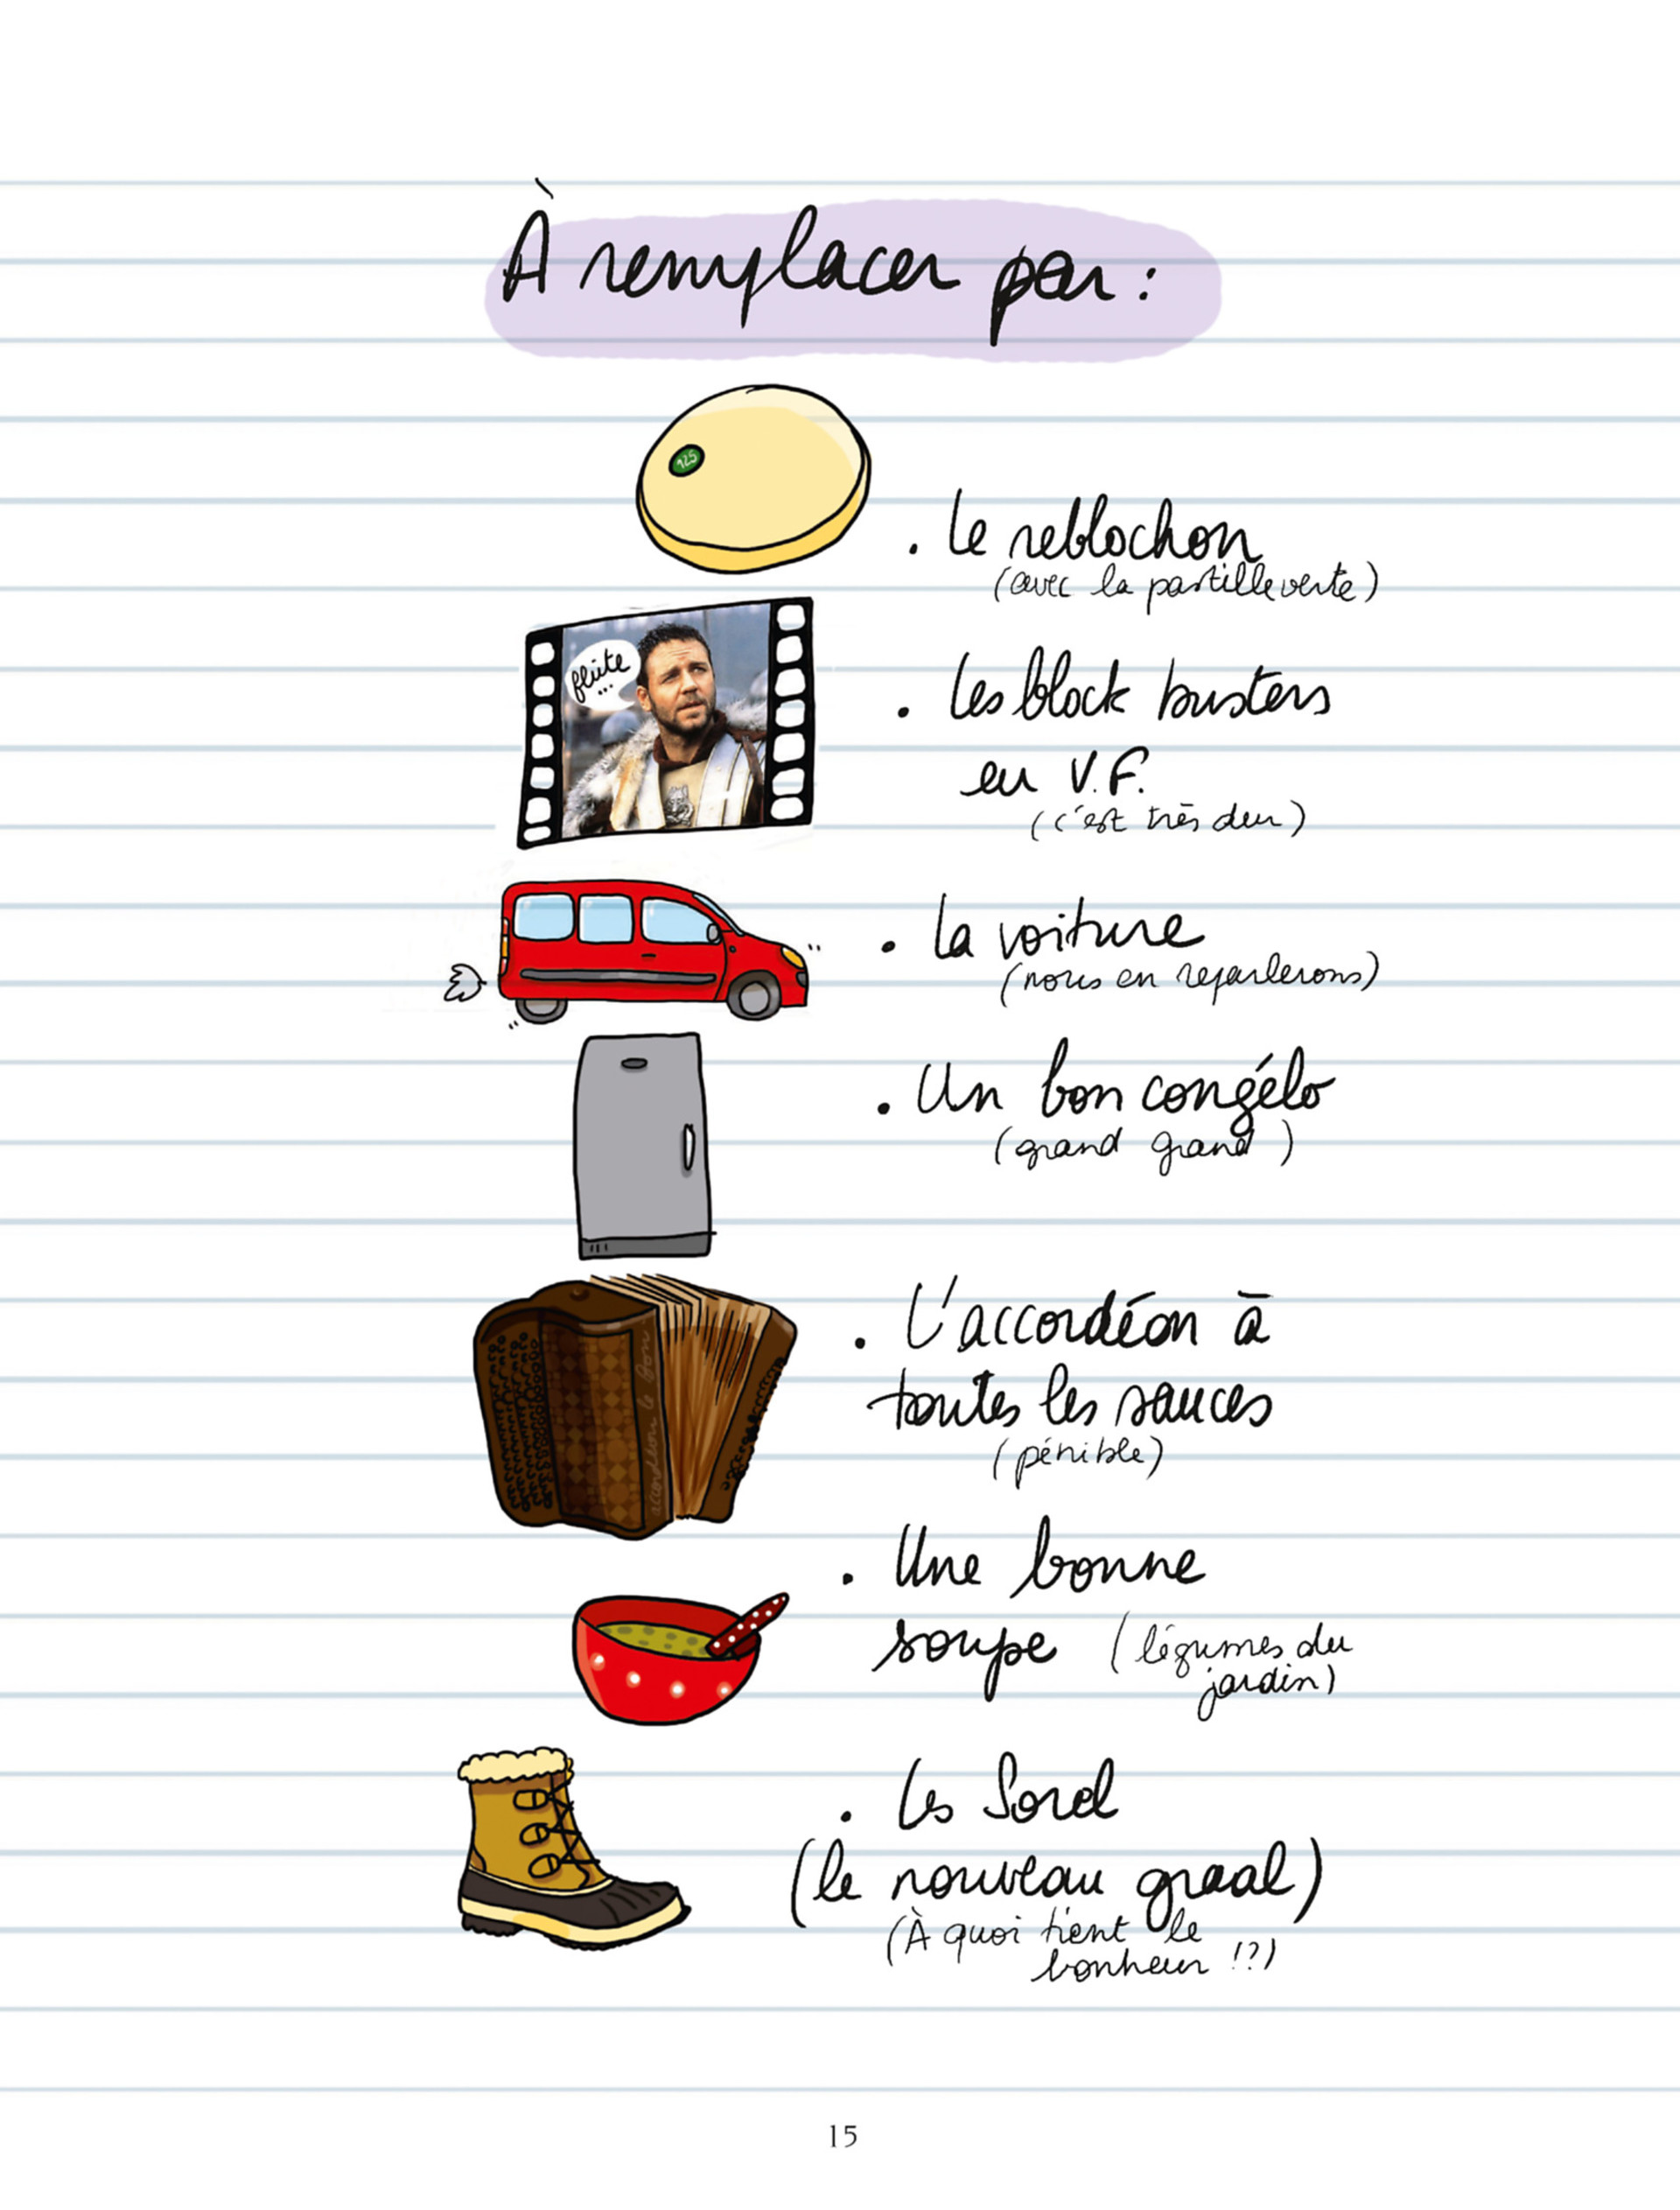 À remplacer par :
125
. Le reblochon
(avec la pastille verte)
flûte
...
. Les block busters
en V.F.
(c'est très dur)
. La voiture
(nous en reparlerons)
. Un bon congélo
(grand grand)
. L'accordéon à
toutes les sauces
(pénible)
. Une bonne
soupe (légumes du
jardin)
. Les Sorel
(le nouveau graal)
(À quoi tient le
bonheur !?)
15